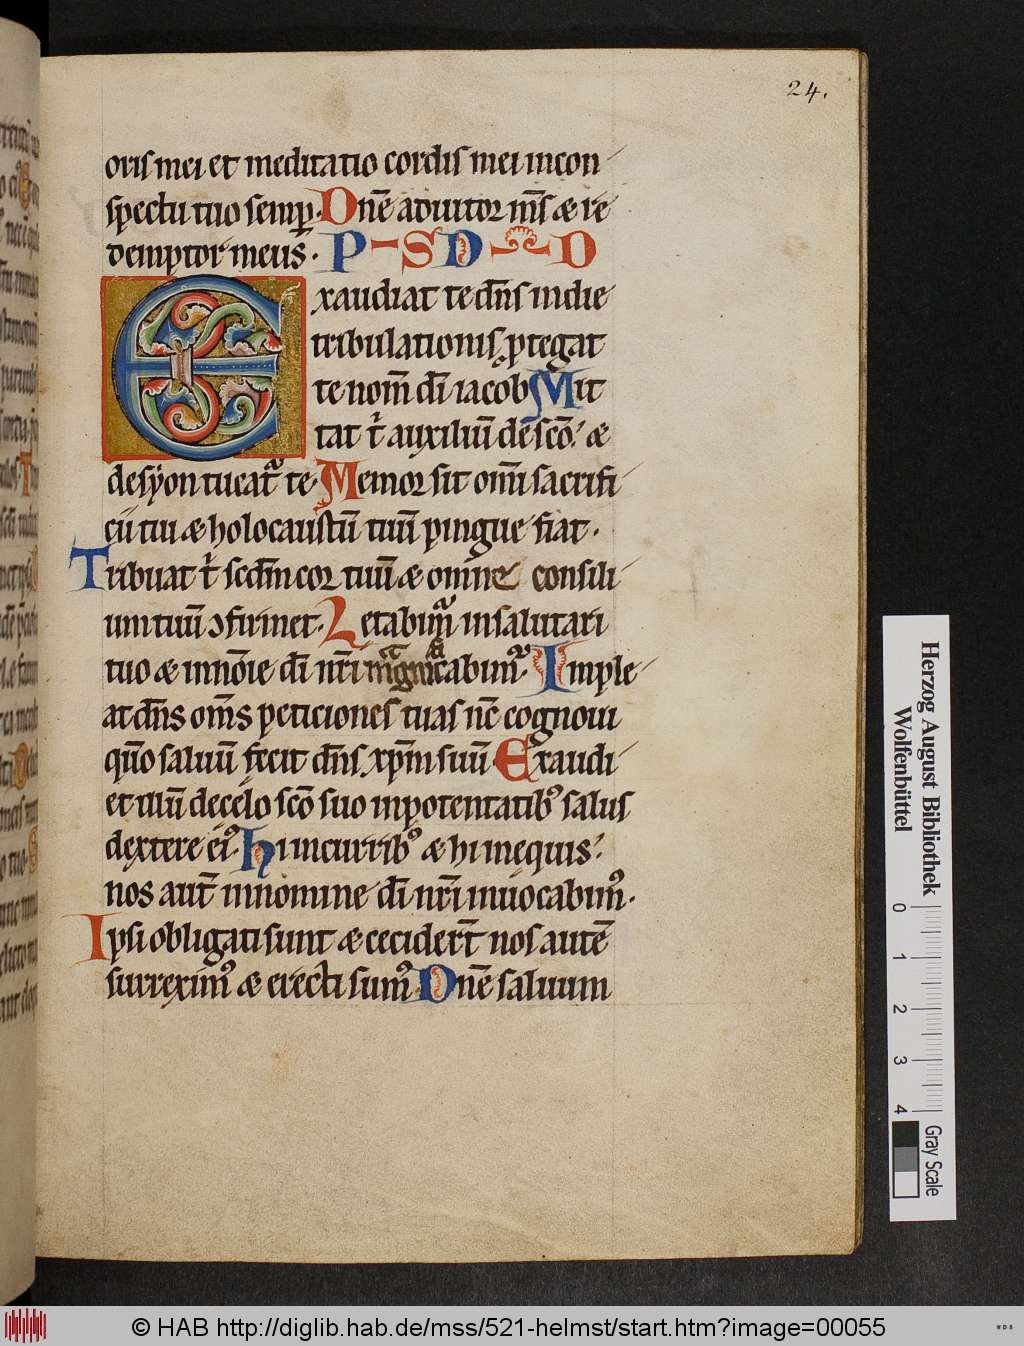 24.
oris mei et meditatio cordis mei incon
spectu tuo semp. Dn̄e adiutor m̄s æ re
demptor meus. P S D D
Exaudiat te dn̄s in die
tribulationis ꝓtegat
te nom̄ dī iacob Mit
tat t̓ auxiliū de sc̄o. æ
de syon tueat᷑ te. Memor sit om̄i sacrifi
cii tui æ holocaustū tuū pingue fiat.
Tribuat t̓ scdm̄ cor tuū æ omne consili
um tuū ↄfirmet. Letabim᷑ in salutari
tuo æ in nōie dī nr̄i magnificabim᷑. Imple
at dn̄s om̄s peticiones tuas nc̄ cognoui
qm̄o saluū fecit dn̄s xp̄m suū. Exaudi
et illū de celo sc̄o suo in potentatibꝰ salus
dextere eiꝰ. Hi in curribꝰ æ hi in equis.
nos aut̄ in nomine dī nr̄i inuocabimꝰ.
Ipsi obligati sunt æ cecider̄t nos autē
surreximꝰ æ erecti sumꝰ. Dn̄e saluum
Herzog August Bibliothek
Wolfenbüttel
0 1 2 3 4
Gray Scale
© HAB http://diglib.hab.de/mss/521-helmst/start.htm?image=00055